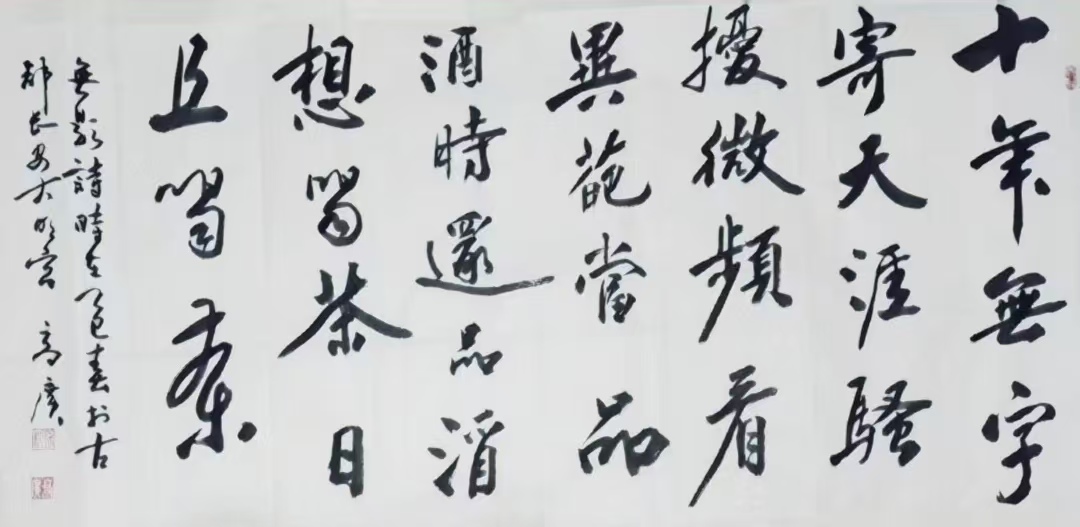 十年無字
寄天涯騷
擾微頻看
異葩當品
酒時還品酒
想喝茶日
且喝茶
無題詩時在乙巳春於古
都長安大明宮 高廣